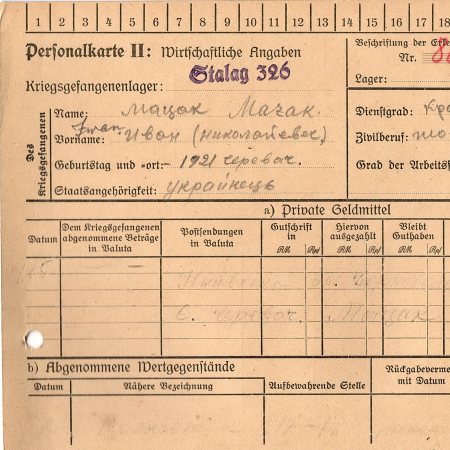 1 2 3 4 5 6 7 8 9 10 11 12 13 14 15 16 17 18
Personalkarte II: Wirtschaftliche Angaben
Beschriftung der Erke
Nr. 8
Stalag 326
Kriegsgefangenenlager:
Lager:
Des Kriegsgefangenen
Name: Мацак Мачак
Dienstgrad: Кра
Iwan
Vorname: Иван (николаевич)
Zivilberuf:
Geburtstag und -ort: 1921 черевач.
Grad der Arbeitsf
Staatsangehörigkeit: украйнець
a) Private Geldmittel
Datum
Dem Kriegsgefangenen abgenommene Beträge in Valuta
Postsendungen in Valuta
Gutschrift in
RM Rpf
Hiervon ausgezahlt
RM Rpf
Bleibt Guthaben
RM Rpf
с. черевач. Мацак
b) Abgenommene Wertgegenstände
Datum
Nähere Bezeichnung
Aufbewahrende Stelle
Rückgabeverme
mit Datum